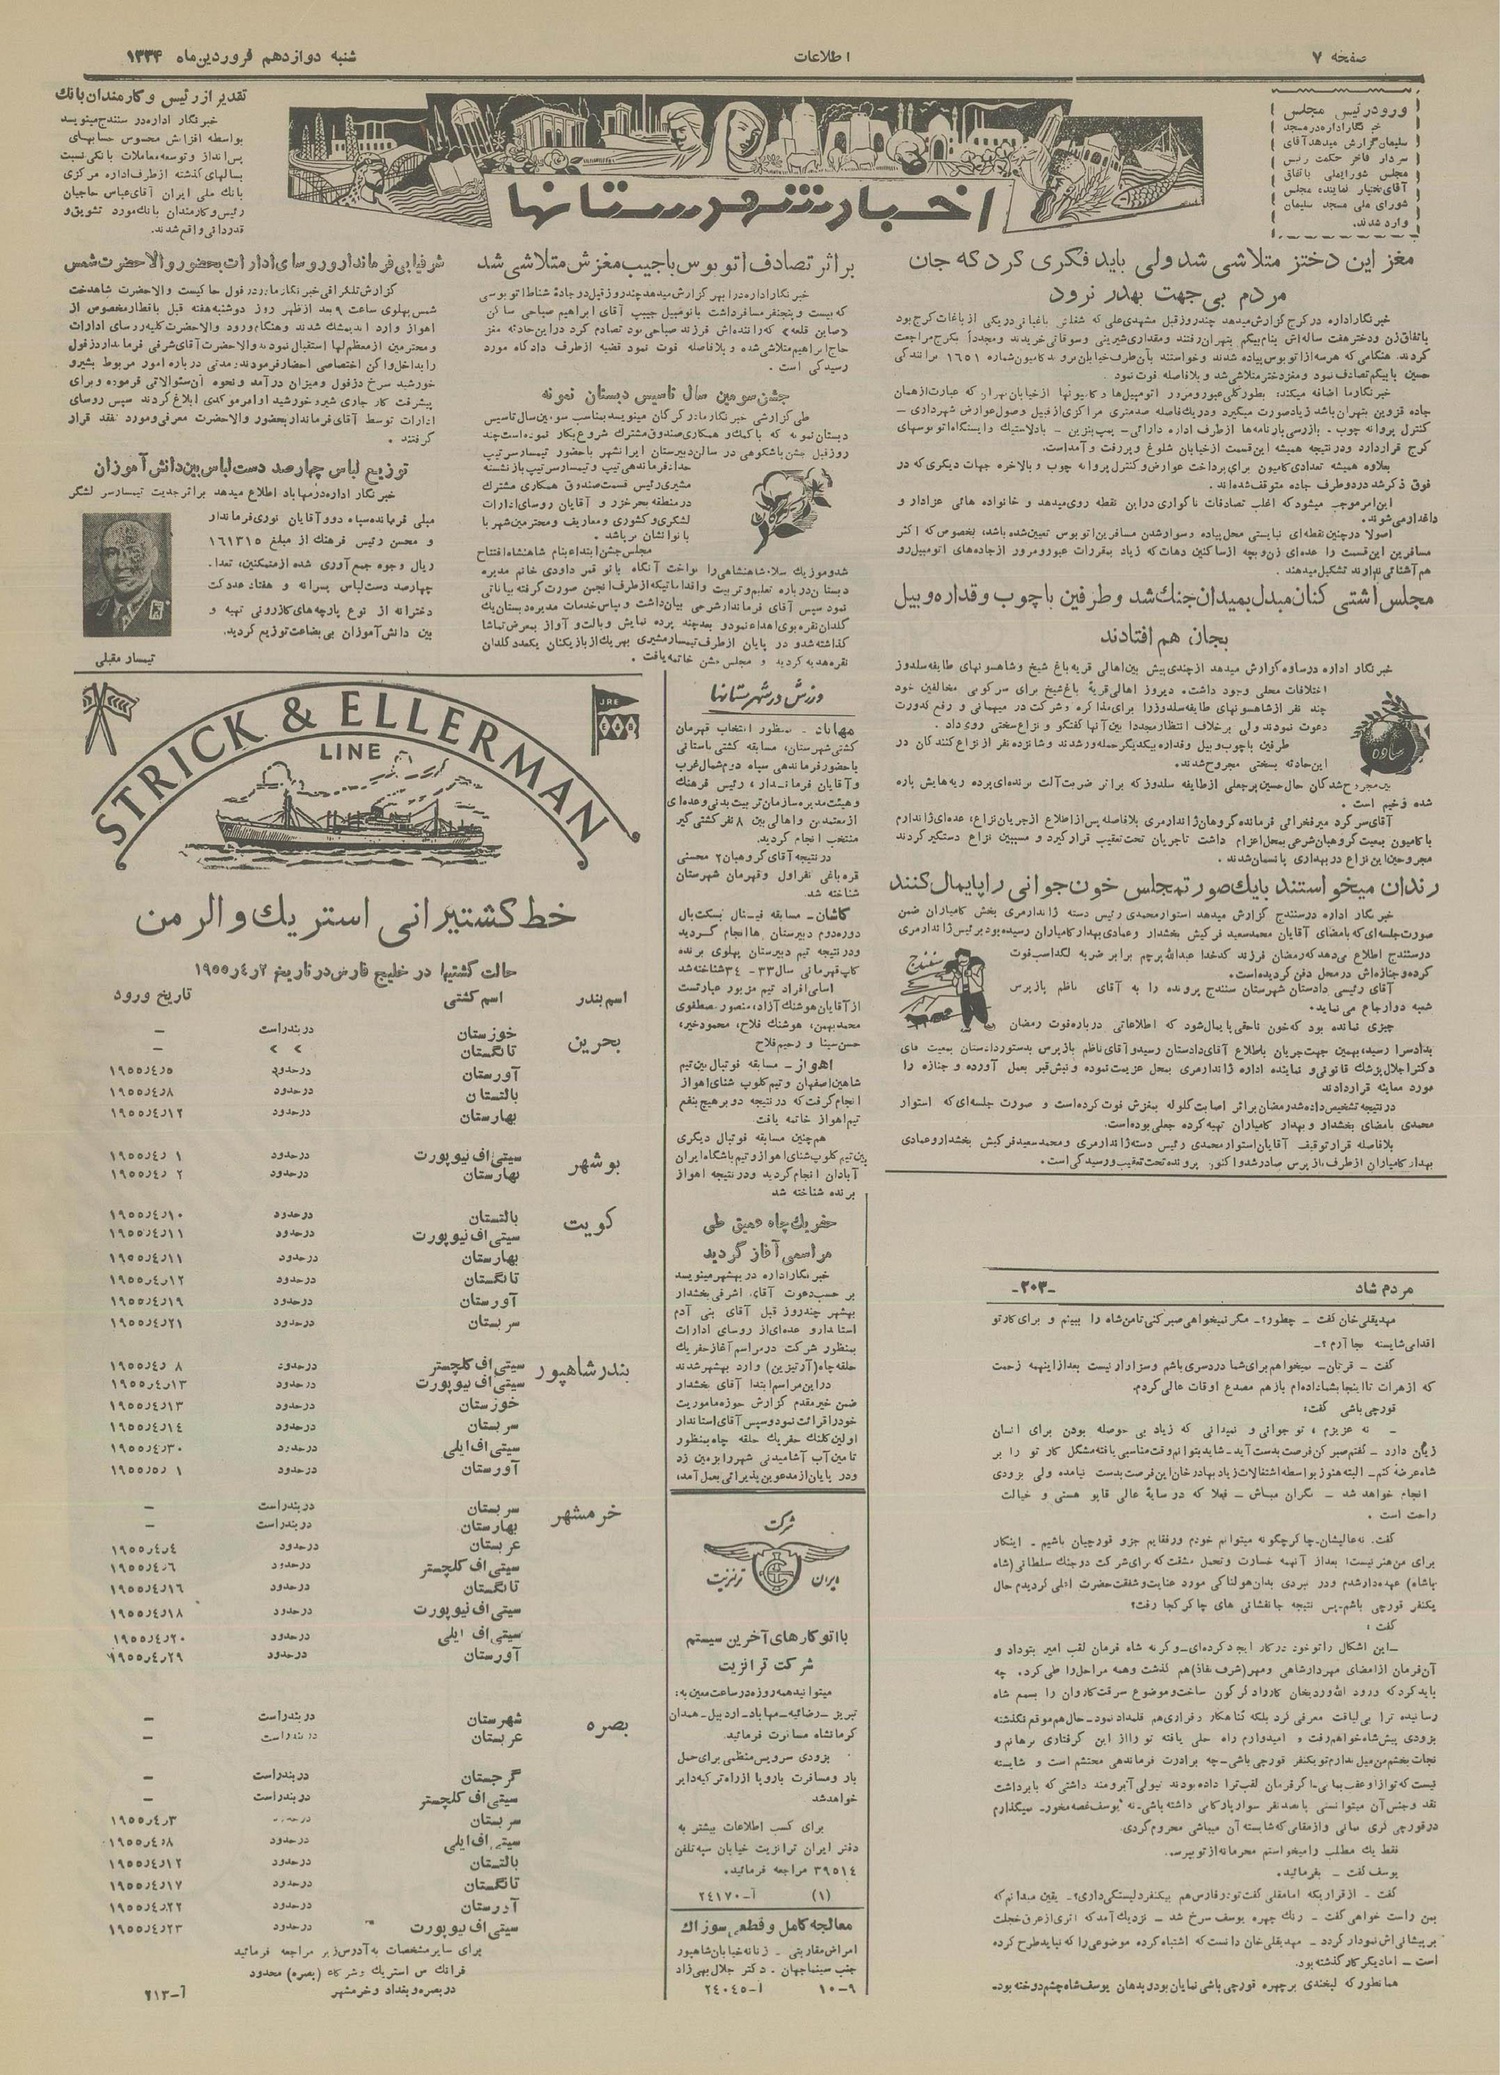 صفحه ۷
اطلاعات
شنبه دوازدهم فروردین‌ماه ۱۳۳۴
ورود رئیس مجلس
خبرنگار اداره در مسجد
سلیمان گزارش میدهد آقای
سردار فاخر حکمت رئیس
مجلس شورایملی باتفاق
آقای بختیار نماینده مجلس
شورای ملی مسجد سلیمان
وارد شدند.
اخبار شهرستانها
مغز این دختر متلاشی شد ولی باید فکری کرد که جان
مردم بی‌جهت بهدر نرود
خبرنگار اداره در کرج گزارش میدهد چند روز قبل مشهدی علی که شغلش باغبانی در یکی از باغات کرج بود
باتفاق زن و دختر هفت ساله‌اش بنام بیگم بتهران رفتند و مقداری شیرینی و سوقاتی خریدند و مجدداً بکرج مراجعت
کردند. هنگامی که هر سه از اتوبوس پیاده شدند و خواستند بآن طرف خیابان بروند کامیون شماره ۱۶۵۱ برانندگی
حسین با بیگم تصادف نمود و مغز دختر متلاشی شد و بلافاصله فوت نمود
خبرنگار ما اضافه میکند: بطور کلی عبور و مرور اتومبیل‌ها و کامیونها از خیابان تهران که عبارت از همان
جاده قزوین بتهران باشد زیاد صورت میگیرد و در یک فاصله صد متری مراکزی از قبیل وصول عوارض شهرداری -
کنترل پروانه چوب. بازرسی بارنامه‌ها از طرف اداره دارائی - پمپ بنزین - بادلاستیک و ایستگاه اتوبوسهای
کرج قرار دارد و در نتیجه همیشه این قسمت از خیابان شلوغ و پر رفت و آمد است.
بعلاوه همیشه تعدادی کامیون برای پرداخت عوارض و کنترل پروانه چوب و بالاخره جهات دیگری که در
فوق ذکر شد در دو طرف جاده متوقف شده‌اند.
این امر موجب میشود که اغلب تصادفات ناگواری در این نقطه روی میدهد و خانواده هائی عزادار و
داغدار می‌شوند.
اصولا در چنین نقطه‌ای نبایستی محل پیاده و سوار شدن مسافرین اتوبوس تعیین شده باشد، بخصوص که اکثر
مسافرین این قسمت را عده‌ای زن و بچه از ساکنین دهات که زیاد بمقررات عبور و مرور از جاده‌های اتومبیل‌رو
هم آشنائی ندارند تشکیل میدهند.
مجلس آشتی کنان مبدل بمیدان جنگ شد و طرفین با چوب و قداره و بیل
بجان هم افتادند
خبرنگار اداره در ساوه گزارش میدهد از چندی پیش بین اهالی قریه باغ شیخ و شاهسونهای طایفه سلدوز
اختلافات محلی وجود داشت. دیروز اهالی قریهٔ باغ شیخ برای سرکوبی مخالفین خود
چند نفر از شاهسونهای طایفه سلدوز را برای مذاکره و شرکت در میهمانی و رفع کدورت
دعوت نمودند ولی برخلاف انتظار مجددا بین آنها گفتگو و نزاع سختی روی داد.
طرفین با چوب و بیل و قداره بیکدیگر حمله ور شدند و شانزده نفر از نزاع کنندگان در
این حادثه بسختی مجروح شدند.
ساوه
بین مجروح شدگان حال حسین پرجعلی از طایفه سلدوز که براثر ضربت آلت برنده‌ای پرده ریه‌هایش پاره
شده وخیم است.
آقای سرگرد میرفخرائی فرمانده گروهان ژاندارمری بلافاصله پس از اطلاع از جریان نزاع، عده‌ای ژاندارم
با کامیون بمعیت گروهبان شرعی بمحل اعزام داشت تا جریان تحت تعقیب قرار گیرد و مسببین نزاع دستگیر گردند
مجروحین این نزاع در بهداری پانسمان شدند.
رندان میخواستند با یک صورتمجلس خون جوانی را پایمال کنند
خبرنگار اداره در سنندج گزارش میدهد استوار محمدی رئیس دسته ژاندارمری بخش کامیاران ضمن
صورت جلسه‌ای که بامضای آقایان محمد سعید فرکیش بخشدار و عمادی بهدار کامیاران رسیده بود برئیس ژاندارمری
در سنندج اطلاع میدهد که رمضان فرزند کدخدا عبدالله پرچم برابر ضربه لگد اسب فوت
کرده و جنازه‌اش در محل دفن گردیده است.
آقای رئیسی دادستان شهرستان سنندج پرونده را به آقای ناظم بازپرس
شعبه دو ارجاع می نماید.
سنندج
چیزی نمانده بود که خون ناحقی پایمال شود که اطلاعاتی درباره فوت رمضان
بدادسرا رسید، بهمین جهت جریان باطلاع آقای دادستان رسید و آقای ناظم بازپرس بدستور دادستان بمعیت آقای
دکتر اجلال پزشک قانونی و نماینده اداره ژاندارمری بمحل عزیمت نموده و نبش قبر بعمل آورده و جنازه را
مورد معاینه قرار دادند
در نتیجه تشخیص داده شد رمضان براثر اصابت گلوله بمغزش فوت کرده است و صورت جلسه‌ای که استوار
محمدی بامضای بخشدار و بهدار کامیاران تهیه کرده جعلی بوده است.
بلافاصله قرار توقیف آقایان استوار محمدی رئیس دسته ژاندارمری و محمد سعید فرکیش بخشدار و عمادی
بهدار کامیاران از طرف بازپرس صادر شد و اکنون پرونده تحت تعقیب و رسیدگی است.
مردم شاد
-۲۰۳-
مهدیقلی خان گفت - چطور؟ - مگر نمیخواهی صبر کنی تا من شاه را ببینم و برای کار تو
اقدامی شایسته بجا آرم؟ -
گفت - قربان - نمیخواهم برای شما دردسری باشم و سزاوار نیست بعد از اینهمه زحمت
که از هرات تا اینجا بشما داده‌ام باز هم مصدع اوقات عالی گردم.
قورچی باشی گفت:
- نه عزیزم، تو جوانی و نمیدانی که زیاد بی حوصله بودن برای انسان
زیان دارد - گفتم صبر کن فرصت بدست آید - شاید بتوانم وقت مناسبی یافته مشگل کار تو را بر
شاه عرضه کنم - البته هنوز بواسطه اشتغالات زیاد بهادرخان این فرصت بدست نیامده ولی بزودی
انجام خواهد شد - نگران مباش - فعلا که در سایهٔ عالی قاپو هستی و خیالت
راحت است.
گفت. نه عالیشان - چاکر چگونه میتوانم خودم ورفقایم جزو قورچیان باشیم. اینکار
برای من هنر نیست؛ بعد از آنهمه خسارت و تحمل مشقت که برای شرکت در جنگ سلطانی (شاه
باشاه) عهده‌دار شدم و در نبردی بدان هولناکی مورد عنایت و شفقت حضرت اعلی گردیدم حال
یکنفر قورچی باشم. پس نتیجه جانفشانی های چاکر کجا رفت؟
گفت:
- این اشکال را تو خود در کار ایجاد کرده‌ای - و گرنه شاه فرمان لقب امیر بتو داد و
آن فرمان از امضای مهردار شاهی و مهر (شرف نفاذ) هم گذشت و همه مراحل را طی کرد. چه
باید کرد که ورود الله وردیخان کار را دگرگون ساخت و موضوع سرقت کاروان را بسمع شاه
رسانیده ترا بی لیاقت معرفی کرد بلکه گناهکار و فراری هم قلمداد نمود - حال هم موقع نگذشته
بزودی پیش شاه خواهم رفت و امیدوارم راه حلی یافته تو را از این گرفتاری برهانم و
نجات بخشم من میل ندارم تو یکنفر قورچی باشی - چه برادرت فرماندهی محتشم است و شایسته
نیست که تو از او عقب بمانی
نقد و جنس آن میتوانستی پانصد نفر سوار یارکابی داشته باشی - نه یوسف غصه مخور - میگذارم
در قورچی گری بمانی و از مقامی که شایسته آن میباشی محروم گردی.
فقط یک مطلب را میخواستم محرمانه از تو بپرسم.
یوسف گفت - بفرمائید.
گفت - از قراریکه امامقلی گفت تو در فارس هم بیکنفر دلبستگی داری؟ - یقین میدانم که
بمن راست خواهی گفت - رنگ چهره یوسف سرخ شد - نزدیک آمد که اثری از عرق خجلت
بر پیشانی‌اش نمودار گردد - مهدیقلی خان دانست که اشتباه کرده موضوعی را که نباید طرح کرده
است - اما دیگر کار گذشته بود.
همانطور که لبخندی بر چهره قورچی باشی نمایان بود و بدهان یوسف شاه چشم دوخته بود-
براثر تصادف اتوبوس با جیپ مغزش متلاشی شد
خبرنگار اداره در ابهر گزارش میدهد چند روز قبل در جاده شناط اتوبوسی
که بیست و پنجنفر مسافر داشت با تومبیل جیپ آقای ابراهیم صباحی ساکن
«صاین قلعه» که راننده‌اش فرزند صباحی بود تصادم کرد در این حادثه مغز
حاج ابراهیم متلاشی شده و بلافاصله فوت نمود قضیه از طرف دادگاه مورد
رسیدگی است.
جشن سومین سال تأسیس دبستان نمونه
طی گزارشی خبرنگار ما در گرگان مینویسد بمناسب سومین سال تاسیس
دبستان نمونه که با کمک و همکاری صندوق مشترک شروع بکار نموده است چند
روز قبل جشن باشکوهی در سالن دبیرستان ایرانشهر با حضور تیمسار سرتیپ
حداد فرماندهی تیپ و تیمسار سرتیپ بازنشسته
مشیری رئیس قسمت صندوق همکاری مشترک
در منطقه بحر خزر و آقایان روسای ادارات
لشگری و کشوری و معاریف و محترمین شهر با
بانوانشان برپا شد.
مجلس جشن ابتدا بنام شاهنشاه افتتاح
گرگان
شد و موزیک سلام شاهنشاهی را نواخت آنگاه بانو قمر داودی خانم مدیره
دبستان درباره تعلیم و تربیت و اقداماتیکه از طرف انجمن صورت گرفته بیاناتی
نمود سپس آقای فرماندار شرحی بیان داشت و بپاس خدمات مدیره دبستان یک
گلدان نقره بوی اهداء نمود و بعد چند پرده نمایش و بالت و آواز بمعرض تماشا
گذاشته شد و در پایان از طرف تیمسار مشیری بهر یک از بازیکنان یکعدد گلدان
نقره هدیه گردید و مجلس جشن خاتمه یافت.
ورزش در شهرستانها
مهاباد - بمنظور انتخاب قهرمان
کشتی شهرستان، مسابقه کشتی باستانی
با حضور فرماندهی سپاه دوم شمال غرب
و آقایان فرماندار، رئیس فرهنگ
و هیئت مدیره سازمان تربیت بدنی و عده‌ای
از معتمدین و اهالی بین ۸ نفر کشتی گیر
منتخب انجام گردید.
در نتیجه آقای گروهبان ۲ محسنی
قره باغی نفر اول و قهرمان شهرستان
شناخته شد.
کاشان - مسابقه فینال بسکت بال
دوره دوم دبیرستان ها انجام گردید
و در نتیجه تیم دبیرستان پهلوی برنده
کاپ قهرمانی سال ۳۳ - ۳۴ شناخته شد
اسامی افراد تیم مزبور عبارتست
از آقایان هوشنگ آزاد، منصور مصطفوی
محمد بهمن، هوشنگ فلاح، محمود خیر،
حسن سینا و رحیم فلاح
اهواز - مسابقه فوتبال بین تیم
شاهین اصفهان و تیم کلوپ شنای اهواز
انجام گرفت که در نتیجه دو بر هیچ بنفع
تیم اهواز خاتمه یافت
هم‌چنین مسابقه فوتبال دیگری
بین تیم کلوپ شنای اهواز و تیم باشگاه ایران
آبادان انجام گردید و در نتیجه اهواز
برنده شناخته شد
حفر یک چاه عمیق طی
مراسمی آغاز گردید
خبرنگار اداره در بهشهر مینویسد
بر حسب دعوت آقای اشرفی بخشدار
بهشهر چند روز قبل آقای بنی آدم
استاندار و عده‌ای از روسای ادارات
بمنظور شرکت در مراسم آغاز حفر یک
حلقه چاه (آرتیزین) وارد بهشهر شدند
در این مراسم ابتدا آقای بخشدار
ضمن خیر مقدم گزارش حوزه ماموریت
خود را قرائت نمود و سپس آقای استاندار
اولین کلنگ حفر یک حلقه چاه بمنظور
تامین آب آشامیدنی شهر را بزمین زد
و در پایان از مدعوین پذیرائی بعمل آمد.
شرکت
ایران ترنزیت
با اتوکارهای آخرین سیستم
شرکت ترانزیت
میتوانید همه روزه در ساعت معین به:
تبریز - رضائیه - مهاباد - اردبیل - همدان
کرمانشاه مسافرت فرمائید.
بزودی سرویس منظمی برای حمل
بار و مسافرت باروپا از راه ترکیه دایر
خواهد شد
برای کسب اطلاعات بیشتر به
دفتر ایران ترانزیت خیابان سپه تلفن
۳۹۵۱۴ مراجعه فرمائید.
(۱) آ-۲۴۱۷۰
معالجه کامل و قطعی سوزاک
امراض مقاربتی - زنانه خیابان شاهپور
جنب سینما جهان. دکتر جلال بهی‌زاد
۱۰-۹ آ-۲۴۰۴۵
تقدیر از رئیس و کارمندان بانک
خبرنگار اداره در سنندج مینویسد
بواسطه افزایش محسوس حسابهای
پس‌انداز و توسعه معاملات بانکی نسبت
بسالهای گذشته از طرف اداره مرکزی
بانک ملی ایران آقای عباس حاجیان
رئیس و کارمندان بانک مورد تشویق و
قدردانی واقع شدند.
شرفیابی فرماندار و روسای ادارات بحضور والاحضرت شمس
گزارش تلگرافی خبرنگار ما در دزفول حاکیست والاحضرت شاهدخت
شمس پهلوی ساعت ۹ بعد از ظهر روز دوشنبه هفته قبل با قطار مخصوص از
اهواز وارد اندیمشک شدند و هنگام ورود والاحضرت کلیه روسای ادارات
و محترمین از معظم لها استقبال نمودند والاحضرت آقای شرقی فرماندار دزفول
را بداخل واگن اختصاصی احضار فرمودند، مدتی درباره امور مربوط بشیر و
خورشید سرخ دزفول و میزان درآمد و نحوه آن سئوالاتی فرموده و برای
پیشرفت کار جاری شیر و خورشید اوامر مؤکدی ابلاغ کردند سپس روسای
ادارات توسط آقای فرماندار بحضور والاحضرت معرفی و مورد تفقد قرار
گرفتند.
توزیع لباس چهارصد دست لباس بین دانش آموزان
خبرنگار اداره در مهاباد اطلاع میدهد براثر جدیت تیمسار سرلشگر
مقبلی فرمانده سپاه دو و آقایان نوری فرماندار
و محسن رئیس فرهنگ از مبلغ ۱۶۱۳۱۵
ریال وجوه جمع‌آوری شده از متمکنین، تعداد
چهارصد دست لباس پسرانه و هفتاد عدد کت
دخترانه از نوع پارچه‌های کازرونی تهیه و
بین دانش آموزان بی بضاعت توزیع گردید.
تیمسار مقبلی
JRE
STRICK & ELLERMAN
LINE
خط کشتیرانی استریک و الرمن
حالت کشتیها در خلیج فارس در تاریخ ۲ر۴ر۱۹۵۵
اسم بندر اسم کشتی تاریخ ورود
بحرین خوزستان در بندر است –
تانگستان » » –
آورستان در حدود ۵ر۴ر۱۹۵۵
بالتستان در حدود ۸ر۴ر۱۹۵۵
بهارستان در حدود ۱۲ر۴ر۱۹۵۵
بوشهر سیتی اف نیوپورت در حدود ۱ ر۴ر۱۹۵۵
بهارستان در حدود ۲ ر۴ر۱۹۵۵
کویت بالتستان در حدود ۱۰ر۴ر۱۹۵۵
سیتی اف نیوپورت در حدود ۱۱ر۴ر۱۹۵۵
بهارستان در حدود ۱۱ر۴ر۱۹۵۵
تانگستان در حدود ۱۲ر۴ر۱۹۵۵
آورستان در حدود ۱۹ر۴ر۱۹۵۵
سربستان در حدود ۲۱ر۴ر۱۹۵۵
بندر شاهپور سیتی اف کلچستر در حدود ۸ ر۴ر۱۹۵۵
سیتی اف نیوپورت در حدود ۱۳ر۴ر۱۹۵۵
خوزستان در حدود ۱۳ر۴ر۱۹۵۵
سربستان در حدود ۱۴ر۴ر۱۹۵۵
سیتی اف ایلی در حدود ۳۰ر۴ر۱۹۵۵
آورستان در حدود ۱ ر۵ر۱۹۵۵
خرمشهر سربستان در بندر است –
بهارستان در بندر است –
عربستان در حدود ۴ر۴ر۱۹۵۵
سیتی اف کلچستر در حدود ۶ر۴ر۱۹۵۵
تانگستان در حدود ۱۶ر۴ر۱۹۵۵
سیتی اف نیوپورت در حدود ۱۸ر۴ر۱۹۵۵
سیتی اف ایلی در حدود ۲۰ر۴ر۱۹۵۵
آورستان در حدود ۲۹ر۴ر۱۹۵۵
بصره شهرستان در بندر است –
عربستان در بندر است –
گرجستان در بندر است –
سیتی اف کلچستر در بندر است –
سربستان در حدود ۳ر۴ر۱۹۵۵
سیتی اف ایلی در حدود ۸ر۴ر۱۹۵۵
بالتستان در حدود ۱۲ر۴ر۱۹۵۵
تانگستان در حدود ۱۷ر۴ر۱۹۵۵
آورستان در حدود ۲۲ر۴ر۱۹۵۵
سیتی اف نیوپورت در حدود ۲۳ر۴ر۱۹۵۵
برای سایر مشخصات به آدرس زیر مراجعه فرمائید
فرانک س استریک و شرکاء (بصره) محدود
در بصره و بغداد و خرمشهر
آ-۲۱۳